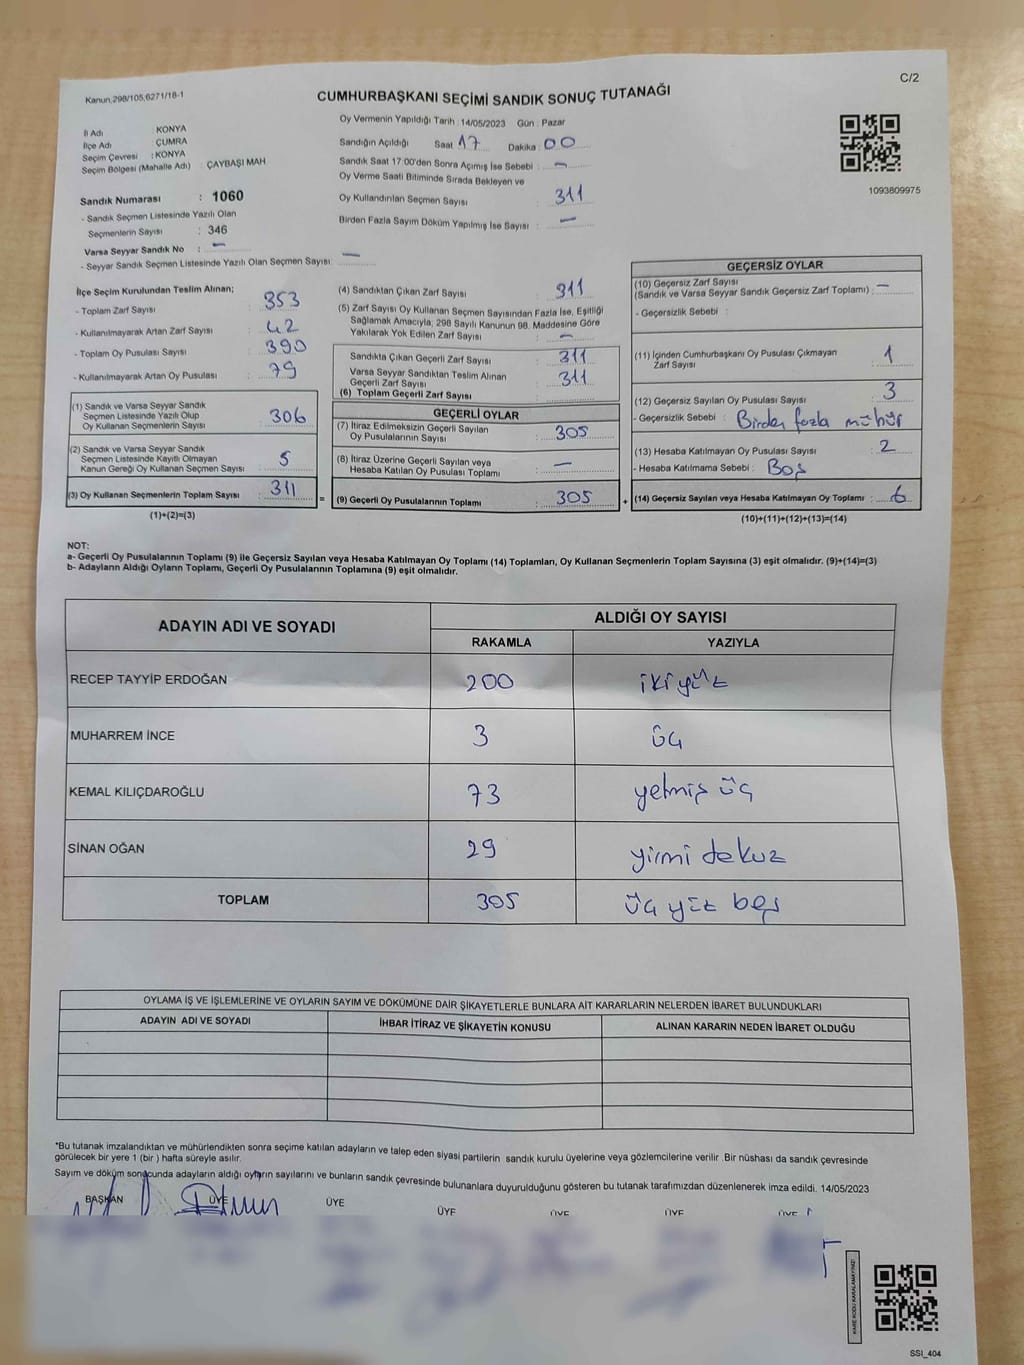 C/2
Kanun,298/105,6271/18-1
CUMHURBAŞKANI SEÇİMİ SANDIK SONUÇ TUTANAĞI
İl Adı : KONYA
İlçe Adı : ÇUMRA
Seçim Çevresi : KONYA
Seçim Bölgesi (Mahalle Adı) : ÇAYBAŞI MAH
Sandık Numarası : 1060
- Sandık Seçmen Listesinde Yazılı Olan
Seçmenlerin Sayısı : 346
Varsa Seyyar Sandık No : –
- Seyyar Sandık Seçmen Listesinde Yazılı Olan Seçmen Sayısı: –
Oy Vermenin Yapıldığı Tarih : 14/05/2023 Gün : Pazar
Sandığın Açıldığı Saat 17 Dakika : 00
Sandık Saat 17:00'den Sonra Açımış İse Sebebi : –
Oy Verme Saati Bitiminde Sırada Bekleyen ve
Oy Kullandırılan Seçmen Sayısı : 311
Birden Fazla Sayım Döküm Yapılmış İse Sayısı : –
1093809975
İlçe Seçim Kurulundan Teslim Alınan;
- Toplam Zarf Sayısı : 353
- Kullanılmayarak Artan Zarf Sayısı : 42
- Toplam Oy Pusulası Sayısı : 390
- Kullanılmayarak Artan Oy Pusulası : 79
(1) Sandık ve Varsa Seyyar Sandık
Seçmen Listesinde Yazılı Olup
Oy Kullanan Seçmenlerin Sayısı : 306
(2) Sandık ve Varsa Seyyar Sandık
Seçmen Listesinde Kayıtlı Olmayan
Kanun Gereği Oy Kullanan Seçmen Sayısı : 5
(3) Oy Kullanan Seçmenlerin Toplam Sayısı : 311 =
(1)+(2)=(3)
(4) Sandıktan Çıkan Zarf Sayısı : 311
(5) Zarf Sayısı Oy Kullanan Seçmen Sayısından Fazla İse, Eşitliği
Sağlamak Amacıyla; 298 Sayılı Kanunun 98. Maddesine Göre
Yakılarak Yok Edilen Zarf Sayısı : –
Sandıkta Çıkan Geçerli Zarf Sayısı : 311
Varsa Seyyar Sandıktan Teslim Alınan
Geçerli Zarf Sayısı : 311
(6) Toplam Geçerli Zarf Sayısı :
GEÇERLİ OYLAR
(7) İtiraz Edilmeksizin Geçerli Sayılan
Oy Pusulalarının Sayısı : 305
(8) İtiraz Üzerine Geçerli Sayılan veya
Hesaba Katılan Oy Pusulası Toplamı : –
(9) Geçerli Oy Pusulalarının Toplamı : 305 +
GEÇERSİZ OYLAR
(10) Geçersiz Zarf Sayısı
(Sandık ve Varsa Seyyar Sandık Geçersiz Zarf Toplamı) : –
- Geçersizlik Sebebi :
(11) İçinden Cumhurbaşkanı Oy Pusulası Çıkmayan
Zarf Sayısı : 1
(12) Geçersiz Sayılan Oy Pusulası Sayısı : 3
- Geçersizlik Sebebi : Birden fazla mühür
(13) Hesaba Katılmayan Oy Pusulası Sayısı : 2
- Hesaba Katılmama Sebebi : Boş
(14) Geçersiz Sayılan veya Hesaba Katılmayan Oy Toplamı : 6
(10)+(11)+(12)+(13)=(14)
NOT:
a- Geçerli Oy Pusulalarının Toplamı (9) ile Geçersiz Sayılan veya Hesaba Katılmayan Oy Toplamı (14) Toplamları, Oy Kullanan Seçmenlerin Toplam Sayısına (3) eşit olmalıdır. (9)+(14)=(3)
b- Adayların Aldığı Oyların Toplamı, Geçerli Oy Pusulalarının Toplamına (9) eşit olmalıdır.
ADAYIN ADI VE SOYADI
ALDIĞI OY SAYISI
RAKAMLA YAZIYLA
RECEP TAYYİP ERDOĞAN 200 ikiyüz
MUHARREM İNCE 3 üç
KEMAL KILIÇDAROĞLU 73 yetmiş üç
SİNAN OĞAN 29 yirmi dokuz
TOPLAM 305 üç yüz beş
OYLAMA İŞ VE İŞLEMLERİNE VE OYLARIN SAYIM VE DÖKÜMÜNE DAİR ŞİKAYETLERLE BUNLARA AİT KARARLARIN NELERDEN İBARET BULUNDUKLARI
ADAYIN ADI VE SOYADI İHBAR İTİRAZ VE ŞİKAYETİN KONUSU ALINAN KARARIN NEDEN İBARET OLDUĞU
*Bu tutanak imzalandıktan ve mühürlendikten sonra seçime katılan adayların ve talep eden siyasi partilerin sandık kurulu üyelerine veya gözlemcilerine verilir .Bir nüshası da sandık çevresinde
görülecek bir yere 1 (bir ) hafta süreyle asılır.
Sayım ve döküm sonucunda adayların aldığı oyların sayılarını ve bunların sandık çevresinde bulunanlara duyurulduğunu gösteren bu tutanak tarafımızdan düzenlenerek imza edildi. 14/05/2023
BAŞKAN ÜYE ÜYE ÜYE ÜYE ÜYE ÜYE
KARE KODU KARALAMAYINIZ!
SSİ_404